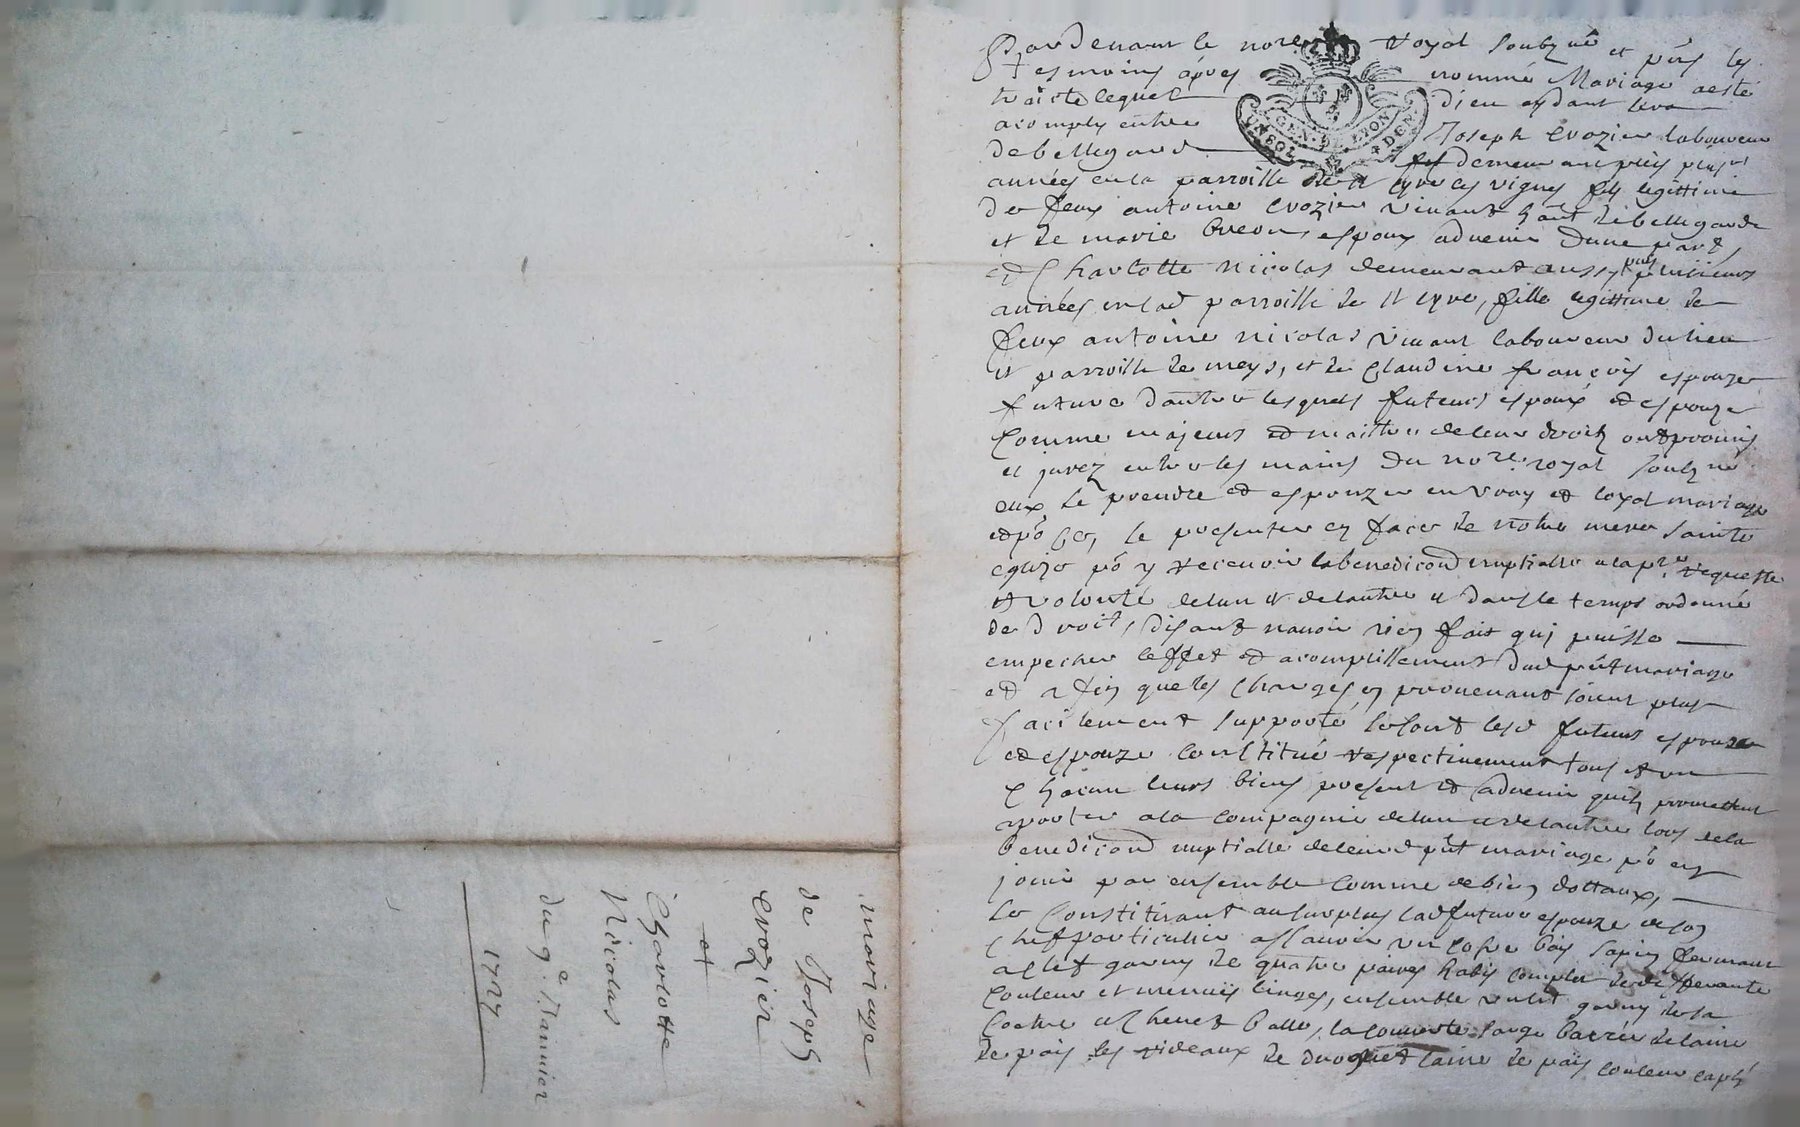 Pardevant le nore royal soubzné et pñs les
tesmoins apres nommé Mariage aesté
traicté lequel dieu aydant sera
acomply entre Joseph Crozier laboureur
de bellegarde demeurant puis plusrs
années en la parroisse de St Cyre les vignes fils legittime
de feux antoine Crozier vivant habt de bellegarde
et de marie breon, espoux advenir dune part,
et Charlotte Nicolas demeurant aussy puis plusieurs
années en lad parroisse de St Cyre, fille legittime de
feux antoine nicolas vivant laboureur du lieu
et parroisse de meys, et de Claudine françois espouze
future dautre lesquels futeurs espoux et espouze
Comme majeurs et maistre de leur droitz ont promis
et jurez entre les mains du nore royal soubzné
eux se prendre et espouzer en vray et loyal mariage
et po ce, se presenter en face de nôtre mere sainte
eglize po y recevoir la benediction nuptialle a la pre requeste
et volonté de lun et de lautre et dans le temps ordonné
de droit, disant navoir rien fait qui puisse
empecher leffet et acomplissement dud pñt mariage
et afin que les charges en provenant soient plus
facilement supporté se sont lesd futeurs espoux
et espouze constitué respectivement tous et un
chacun leurs biens present et advenir quils promettent
aporter a la compagnie de lun et de lautre lors de la
benediction nuptialle de leurd pñt mariage po en
jouir par ensemble comme de bien dottaux,
se Constituant au surplus lad future espouze de son
chef particulier assavoir un cofre bois sapin fermant
a clef garny de quatre paires habis complet de differante
couleur et menuis linges, ensemble un lit garny de sa
coetre et chevet balle, la couverte sarge barrée de laine
de pais les rideaux de droguet laine de païs couleur caphé
GEN. DE LYON
UN SOL 4 DEN
mariage
de Joseph
Crozier
et
Charlotte
Nicolas
du 9e Januier
1727